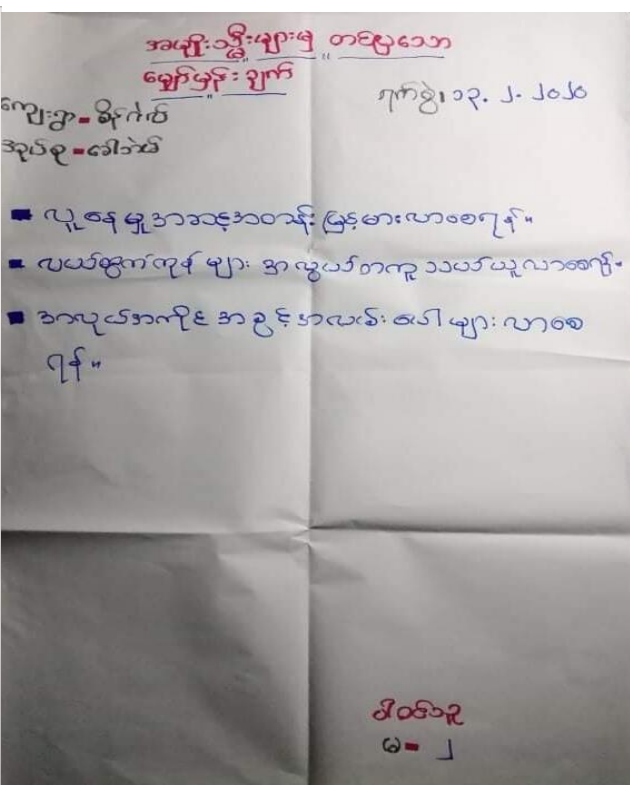 အမျိုးသ္မီးများမှ တင်ပြသော
မျှော်မှန်းချက်
ရက်စွဲ၊ ၁၃. ၂. ၂၀၂၀
ကျေးရွာ = စိန်ဂဲလ်
အုပ်စု = ခေါဘဲမ်
လူနေမှုအဆင့်အတန်းမြင့်မားလာစေရန်။
လယ်ထွက်ကုန်များ အလွယ်တကူသယ်ယူလာစေရန်။
အလုပ်အကိုင်အခွင့်အလမ်းပေါများလာစေ
ရန်။
ပါဝင်သူ
မ = ၂